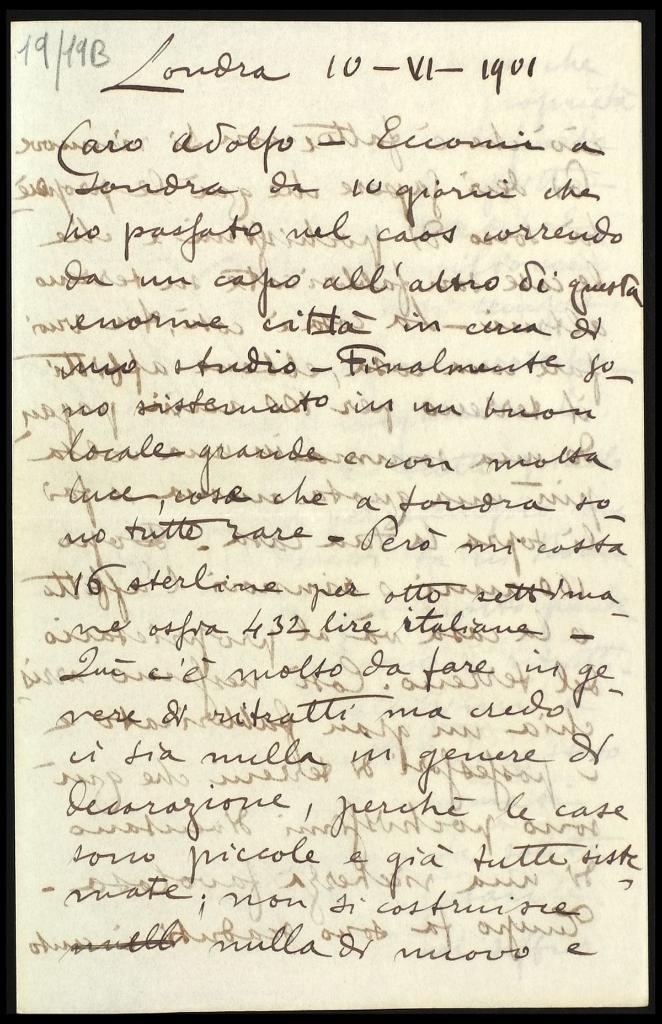 19/19B
Londra 10-VI-1901
Caro Adolfo - Eccomi a
Londra da 10 giorni che
ho passato nel caos correndo
da un capo all'altro di questa
enorme città in cerca di
uno studio - Finalmente so_
no sistemato in un buon
locale grande e con molta
luce, cose che a Londra so
no tutte rare - Però mi costa
16 sterline per otto settima_
ne ossia 432 lire italiane -
Qui c'è molto da fare in ge_
nere di ritratti ma credo
ci sia nulla in genere di
decorazione, perchè le case
sono piccole e già tutte siste_
mate; non si costruisce
nulla di nuovo e